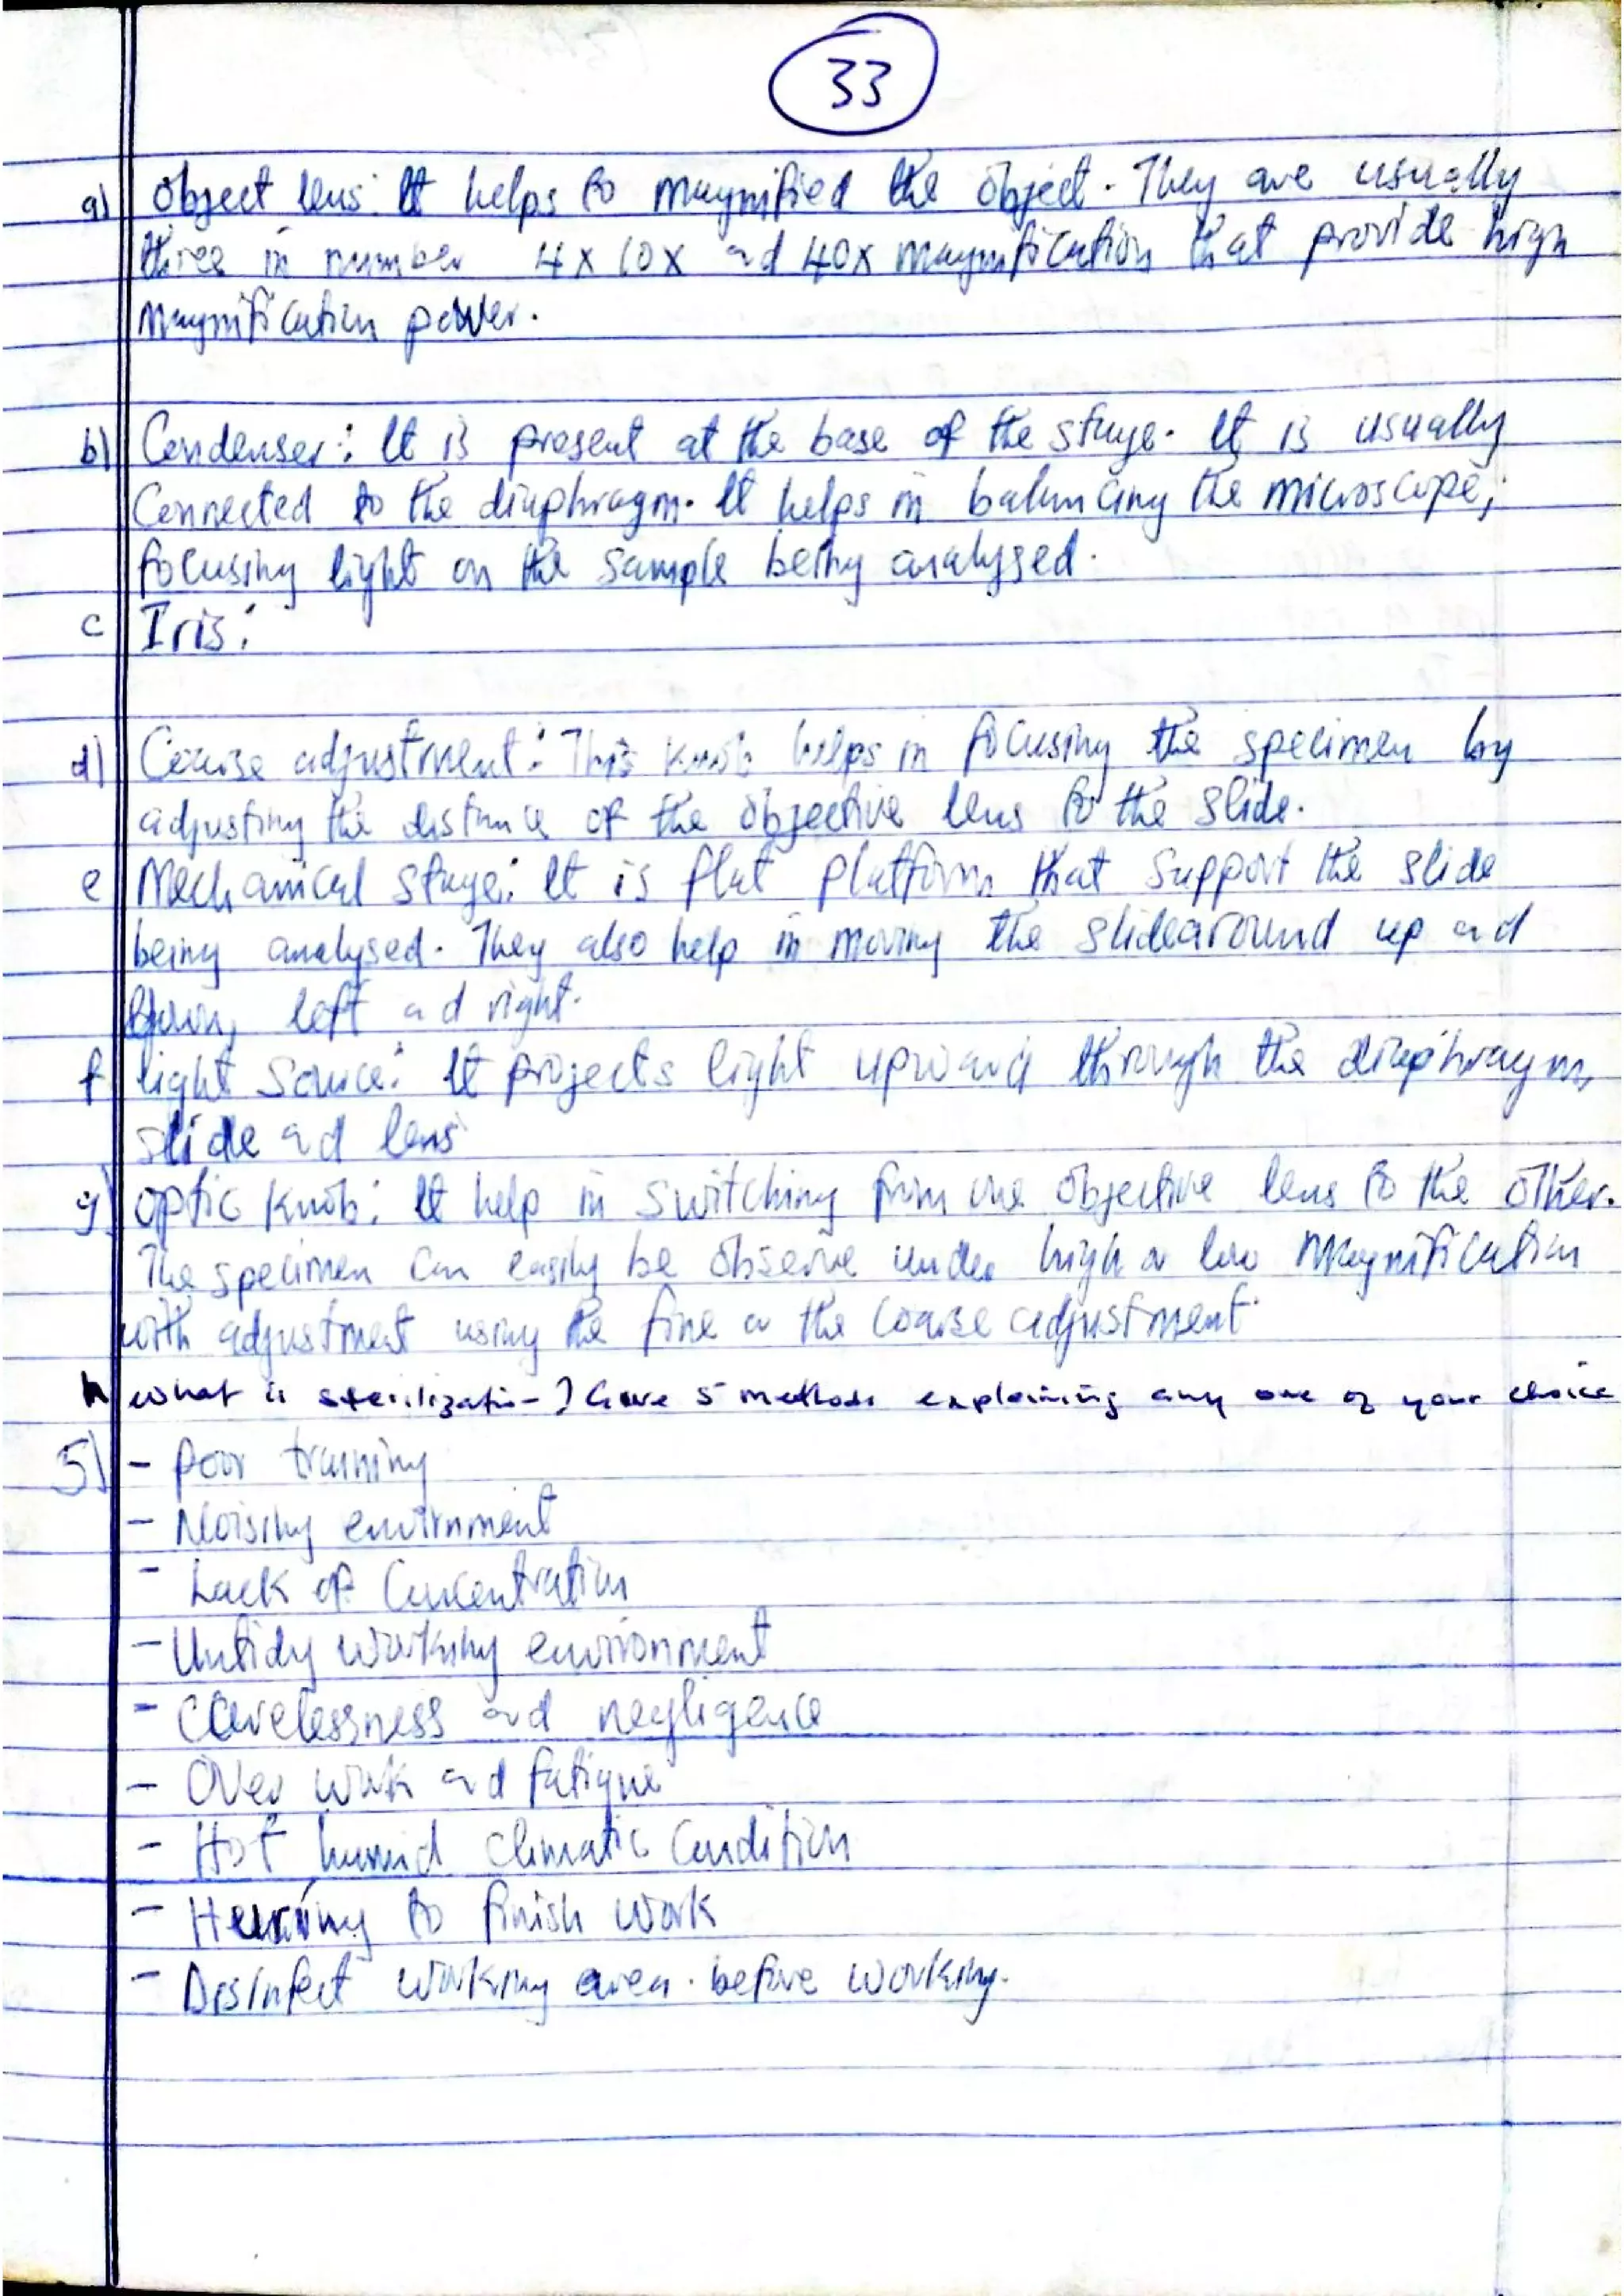 33
a) Object lens: It helps to magnified the object. They are usually
three in number 4x 10x and 40x magnification that provide high
magnification power.
b) Condenser: It is present at the base of the stage. It is usually
Connected to the diaphragm. It helps in balancing the microscope,
focusing light on the sample being analysed.
c Iris:
d) Coarse adjustment: This knob helps in focusing the specimen by
adjusting the distance of the objective lens to the slide.
e Mechanical stage: It is flat platform that support the slide
being analysed. They also help in moving the slidearound up and
down, left and right.
f light source: It projects light upward through the diaphragm,
slide and lens
g) optic knob: It help in switching from one objective lens to the other.
The specimen can easily be observe under high or low magnification
with adjustment using the fine or the coarse adjustment.
h what is sterilization? Give 5 methods explaining any one of your choice
5) - poor training
- Noising envirnment
- Lack of Concentration
- Untidy working environment
- Carelessness and negligence
- Over work and fatigue
- Hot humid climatic condition
- Hurring to finish work
- Disinfect working area. before working.